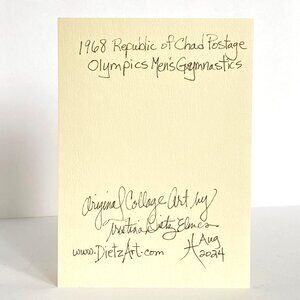 1968 Republic of Chad Postage
Olympics Men's Gymnastics
Original Collage Art by
Tristina Dietz Elmes
www.DietzArt.com
Aug
2024